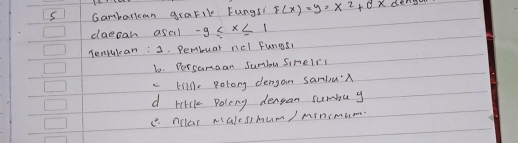 5 Gambarkan grafik Fungsi F(x) = y = x² + 8x dengan
daerah asal -9 ≤ x ≤ 1
Tentukan : a. Pembuat nol fungsi
b. Persamaan Sumbu Simetri
c titik Potong dengan sumbu x
d titik Potong dengan sumbu y
e. nilai maksimum / minimum.